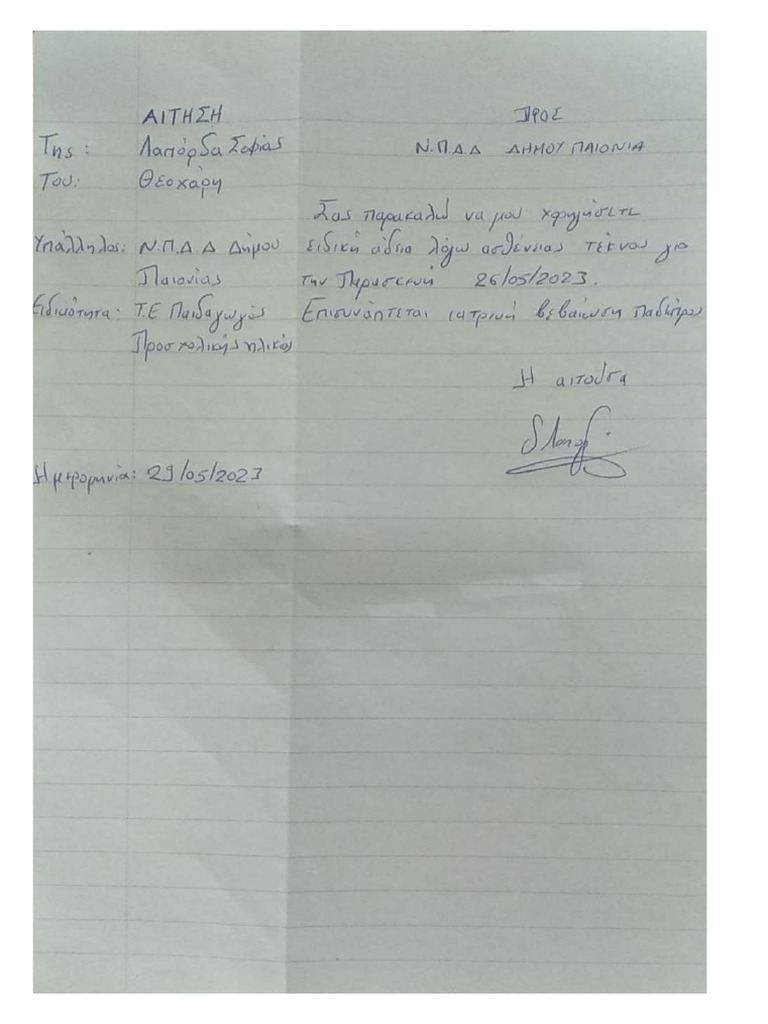 ΑΙΤΗΣΗ
Της: Λαπόρδα Σοφίας
Του: Θεοχάρη
Υπάλληλος: Ν.Π.Δ.Δ Δήμου
Παιονίας
Ειδικότητα: Τ.Ε Παιδαγωγός
Προσχολικής ηλικίας
Ημερομηνία: 29/05/2023
ΠΡΟΣ
Ν.Π.Δ.Δ ΔΗΜΟΥ ΠΑΙΟΝΙΑ
Σας παρακαλώ να μου χορηγήσετε
ειδική άδεια λόγω ασθένειας τέκνου για
την Παρασκευή 26/05/2023.
Επισυνάπτεται ιατρική βεβαίωση
Η αιτούσα